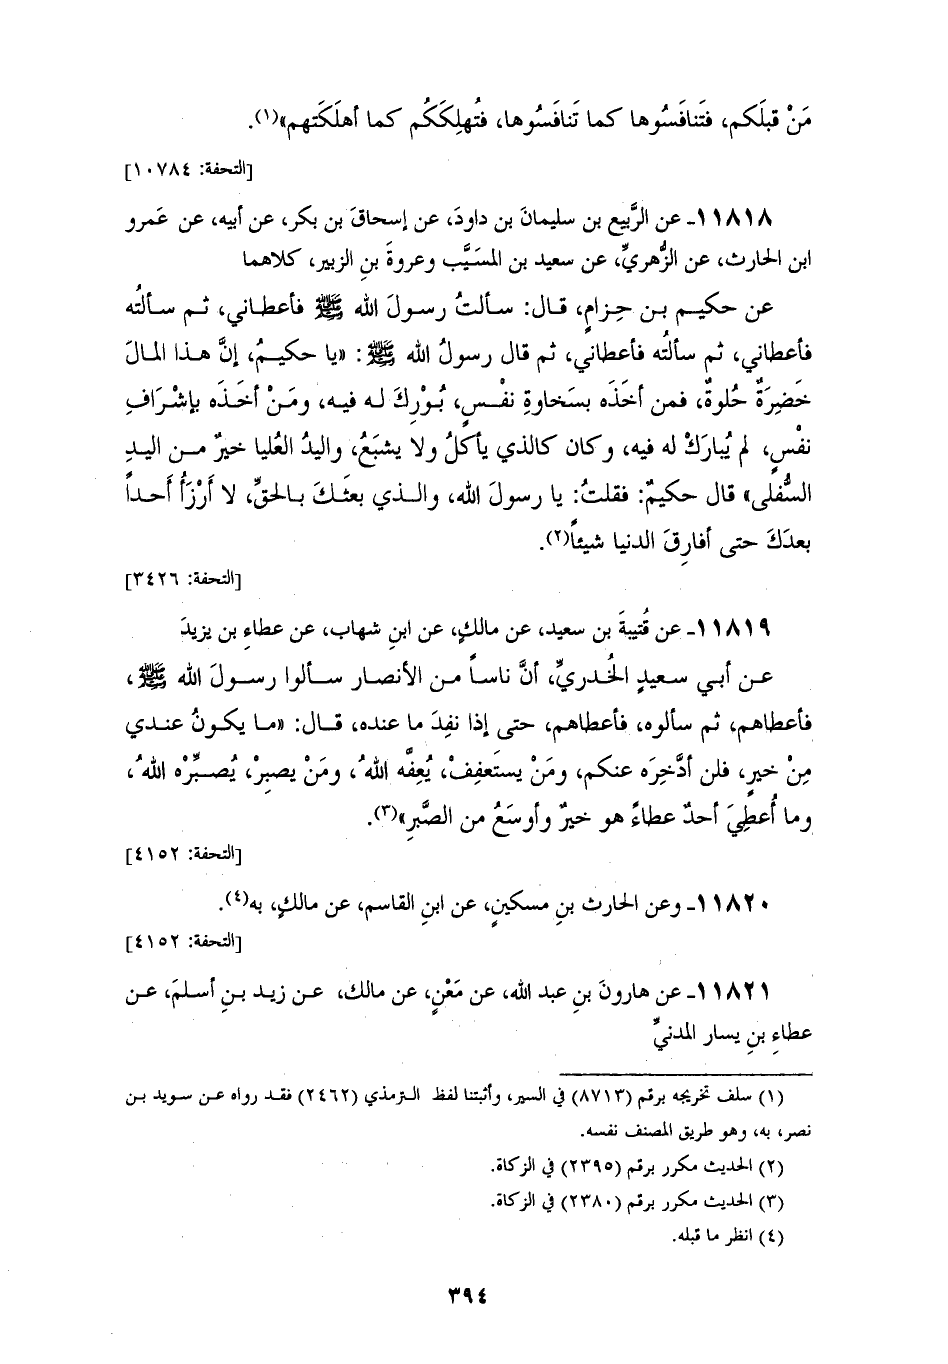 مَنْ قبلَكم، فتَنافَسُوها كما تَنافَسُوها، فتُهلِكَكُم كما أهلَكَتهم»(١).
[التحفة: ١٠٧٨٤]
١١٨١٨ـ عن الرَّبيع بن سليمانَ بن داودَ، عن إسحاقَ بن بكر، عن أبيه، عن عَمرو
ابن الحارث، عن الزُّهريِّ، عن سعيد بن المسَيَّب وعروةَ بنِ الزبير، كلاهما
عن حكيم بن حِزامٍ، قال: سألتُ رسولَ الله ﷺ فأعطاني، ثم سألتُه
فأعطاني، ثم سألتُه فأعطاني، ثم قال رسولُ الله ﷺ: «يا حكيمُ، إنَّ هذا المالَ
خَضِرَةٌ حُلوةٌ، فمن أخَذَه بسَخاوةِ نفْسٍ، بُوْرِكَ له فيه، ومَنْ أخَذَه بإشْرَافِ
نفْسٍ، لم يُبارَكْ له فيه، وكان كالذي يأكلُ ولا يشبَعُ، واليدُ العُليا خيرٌ من اليدِ
السُّفلى» قال حكيمٌ: فقلتُ: يا رسولَ الله، والذي بعثَكَ بالحقِّ، لا أَرْزَأُ أَحداً
بعدَكَ حتى أفارِقَ الدنيا شيئاً(٢).
[التحفة: ٣٤٢٦]
١١٨١٩ـ عن قُتيبةَ بن سعيد، عن مالكٍ، عن ابنِ شهاب، عن عطاءِ بن يزيدَ
عن أبي سعيدٍ الخُدريِّ، أنَّ ناساً من الأنصار سألوا رسولَ الله ﷺ،
فأعطاهم، ثم سألوه، فأعطاهم، حتى إذا نفِدَ ما عنده، قال: «ما يكونُ عندي
مِنْ خيرٍ، فلن أدَّخِرَه عنكم، ومَنْ يستَعفِفْ، يُعِفَّه اللهُ، ومَنْ يصبِرْ، يُصبِّرْه اللهُ،
وما أُعطِيَ أحدٌ عطاءً هو خيرٌ وأوسَعُ من الصَّبرِ»(٣).
[التحفة: ٤١٥٢]
١١٨٢٠ـ وعن الحارث بنِ مسكينٍ، عن ابنِ القاسم، عن مالكٍ، به(٤).
[التحفة: ٤١٥٢]
١١٨٢١ـ عن هارونَ بنِ عبد الله، عن مَعْنٍ، عن مالك، عن زيد بنِ أسلمَ، عن
عطاءِ بنِ يسار المدنيِّ
(١) سلف تخريجه برقم (٨٧١٣) في السير، وأثبتنا لفظ الترمذي (٢٤٦٢) فقد رواه عن سويد بن
نصر، به، وهو طريق المصنف نفسه.
(٢) الحديث مكرر برقم (٢٣٩٥) في الزكاة.
(٣) الحديث مكرر برقم (٢٣٨٠) في الزكاة.
(٤) انظر ما قبله.
٣٩٤